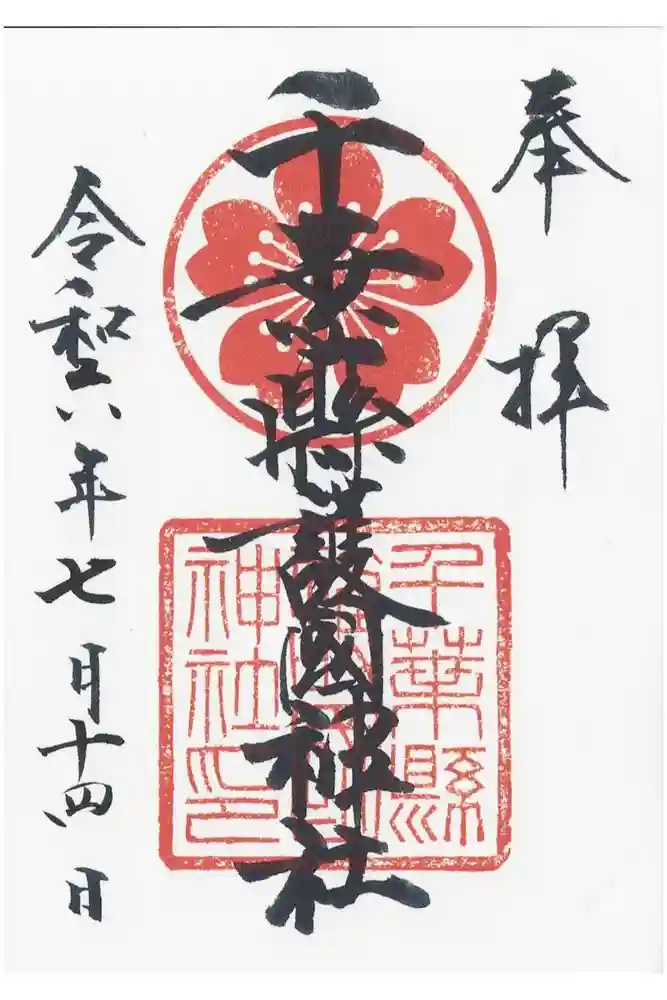 奉拝
千葉縣護國神社
千葉縣
神社印
令和六年七月十四日